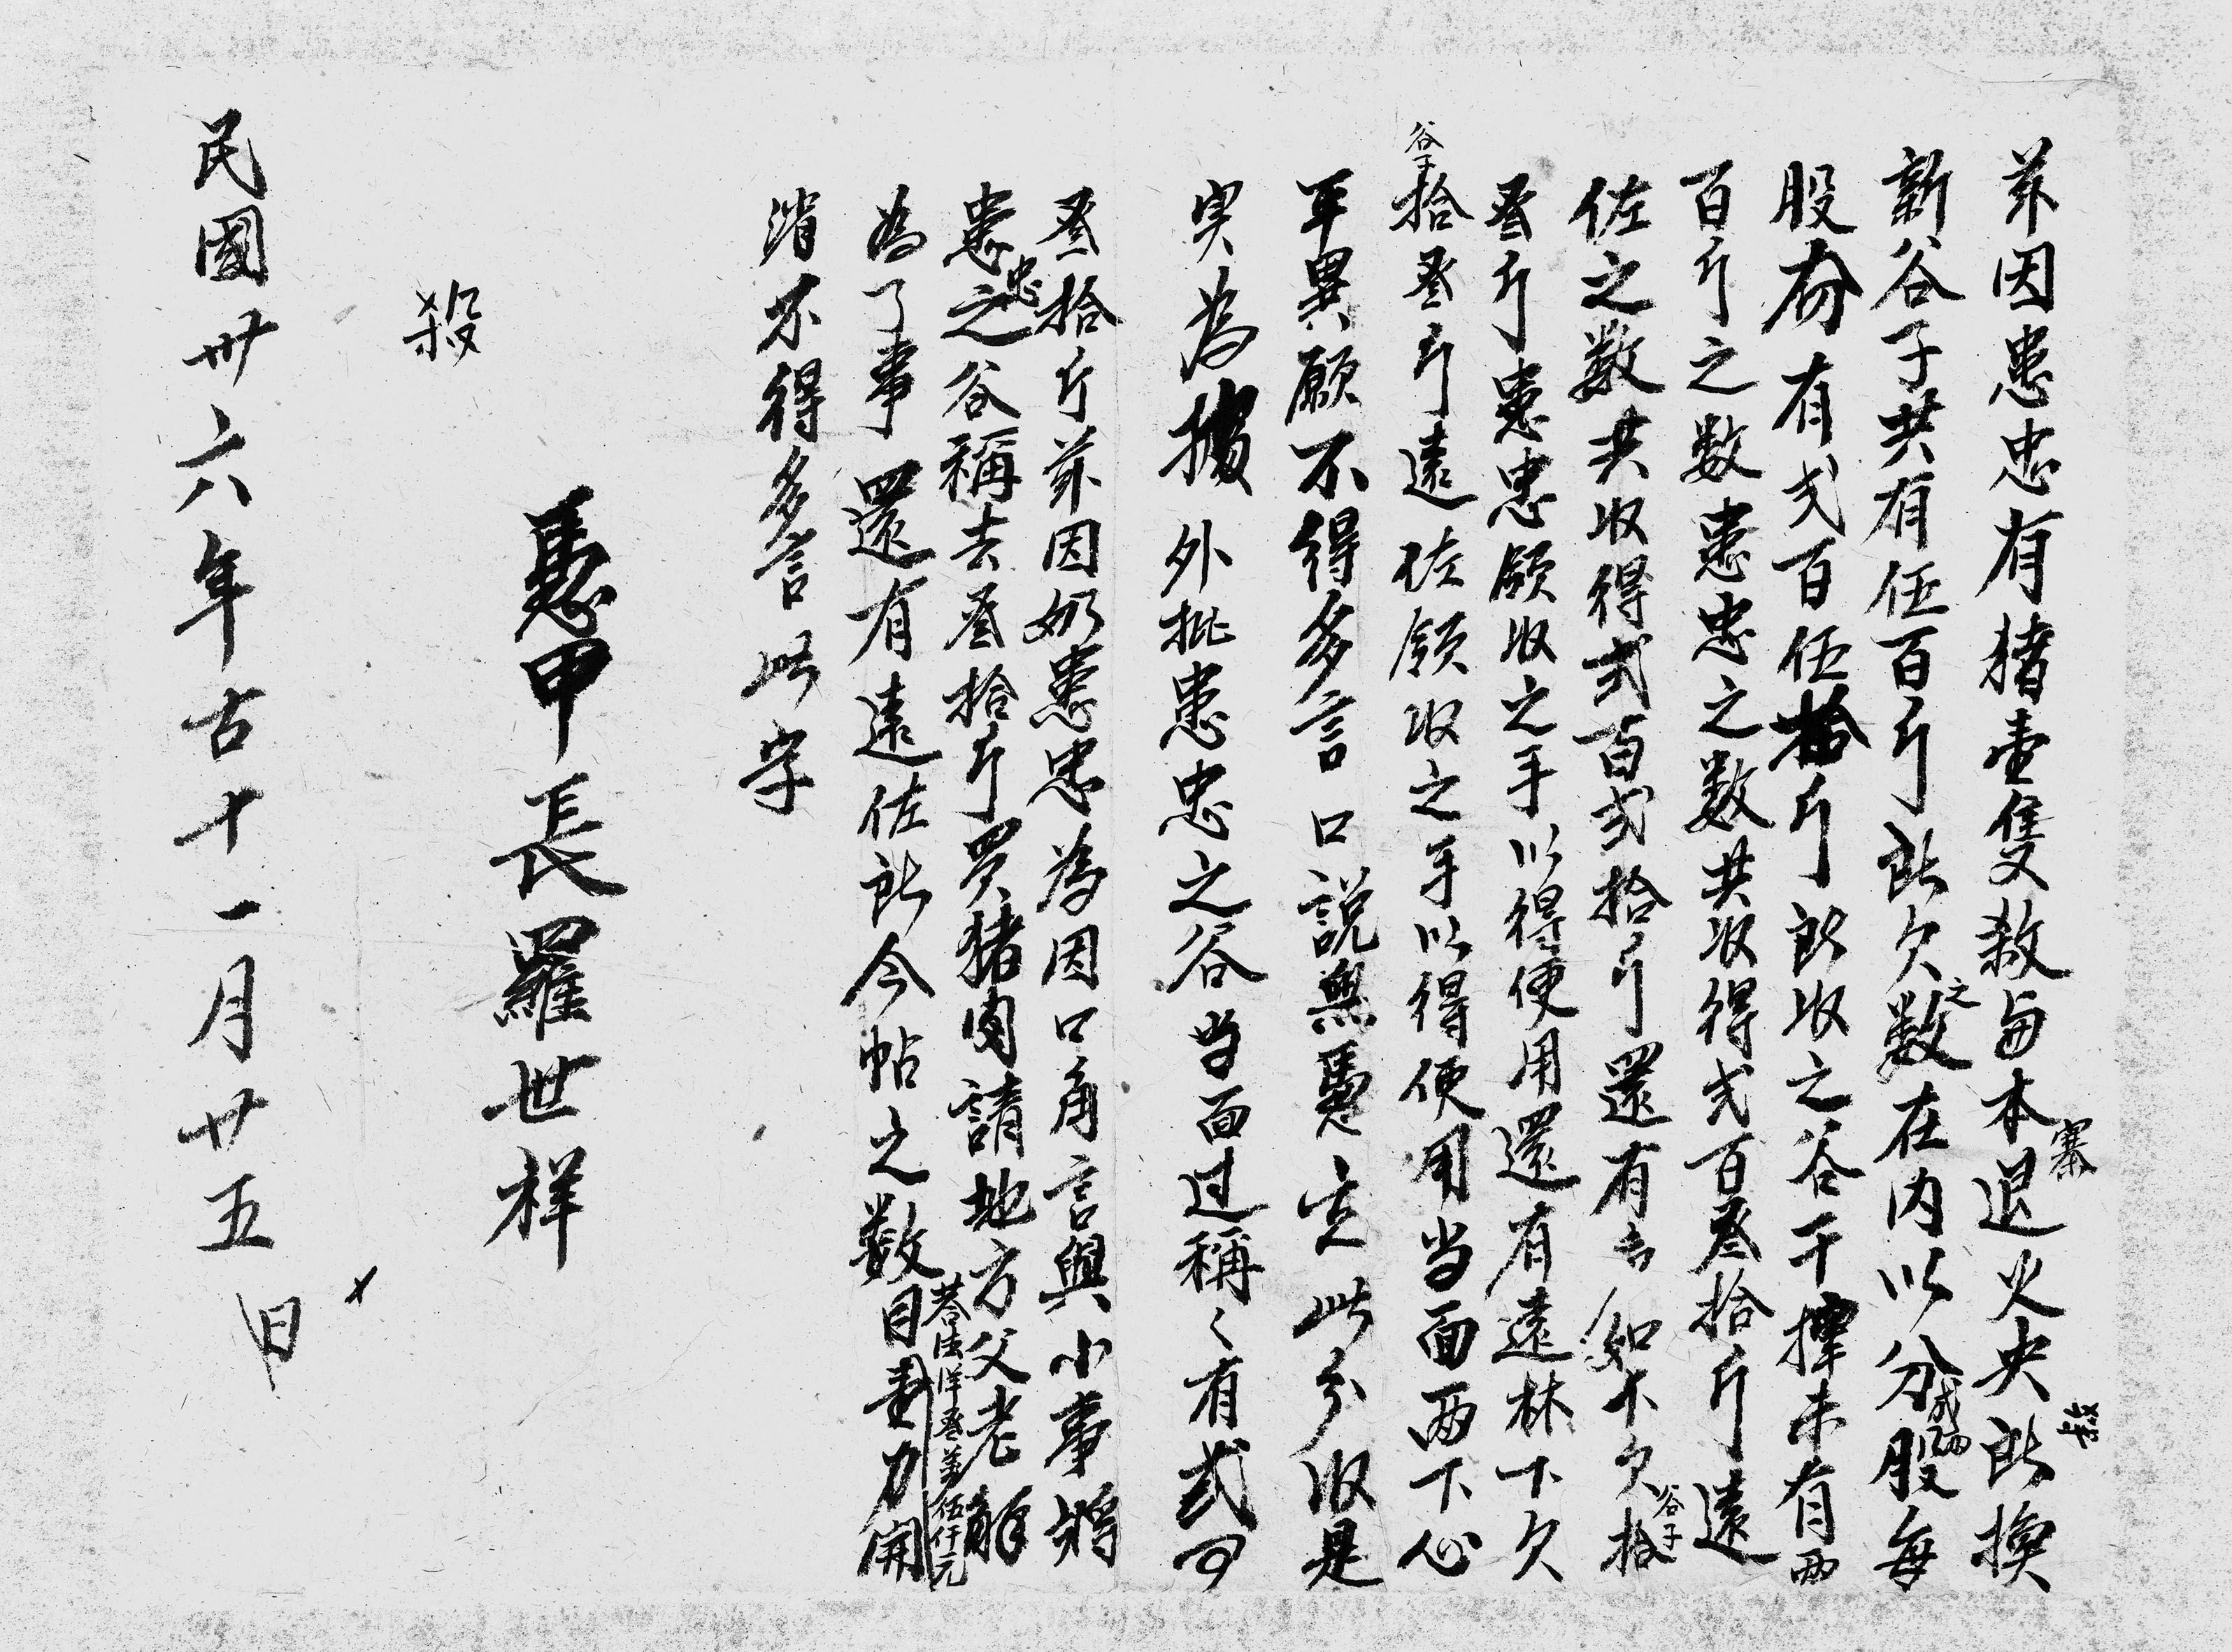 茶因患忠有猪壹隻殺与本寨退火央所換
新谷子共有伍百斤所欠之数在内以分成兩股每
股有弍百伍拾斤所收之谷干未有兩
百斤之数患忠之数共收得弍百叁拾斤遠
佐之数共收得弍百弍拾斤還有欠谷子拾
叁斤患忠領收之手以得使用還有遠林下欠
谷子拾叁斤遠佐領收之手以得使用当面兩下心
平異願不得多言口説無憑立此分收是
实為據 外批患忠之谷当面过稱〻有弍百
叁拾斤茶因奶患忠為因口角言與小事將
患忠之谷稱去叁拾斤買猪肉請地方父老解
為了事還有遠佐所今帖之数目
伍仟元
消不得多言此字
憑甲長羅世祥
殺
民國卅六年古十一月廿五日